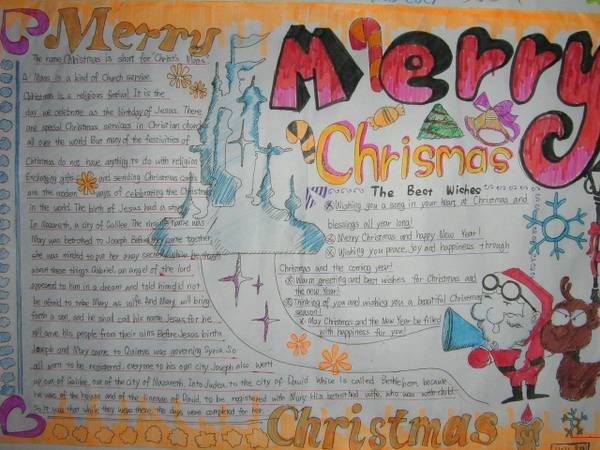 Merry
The name Christmas is short for Christ's Mass.
A Mass is a kind of Church service.
Christmas is a religious festival. It is the
day we celebrate as the birthday of Jesus. There
are special Christmas services in Christian churches
all over the world. But many of the festivities of
Christmas do not have anything to do with religion.
Exchanging gifts and sending Christmas cards
are the modern ways of celebrating the Christmas
in the world. The birth of Jesus had a story
In Nazareth, a city of Galilee. The virgin's name was
Mary was betrothed to Joseph. Before they came together,
she was minded to put her away secretly. While he thought
about these things, Gabriel, an angel of the lord
appeared to him in a dream and told him did not
be afraid to take Mary as wife. And Mary will bring
forth a son, and he shall call his name Jesus for he
will save his people from their sins. Before Jesus birth,
Joseph and Mary came to Quirinus was governing Syria. So
all went to be registered, everyone to his own city. Joseph also went
up out of Galilee, out of the city of Nazareth, into Judea, to the city of David
which is called Bethlehem, because
he was of the house and of the lineage of David, to be registered with Mary. His betrothed wife, who was with child.
So it was that while they were there, the days were completed for her
Merry
Chrismas
The Best Wishes
Wishing you a song in your heart at Christmas and
blessings all year long!
Merry Christmas and happy New Year!
Wishing you peace, Joy and happiness through
Christmas and the coming year!
Warm greeting and best wishes for Christmas and
the new Year!
Thinking of you and wishing you a beautiful Christmas
season!
May Christmas and the New Year be filled
with happiness for you!
Christmas